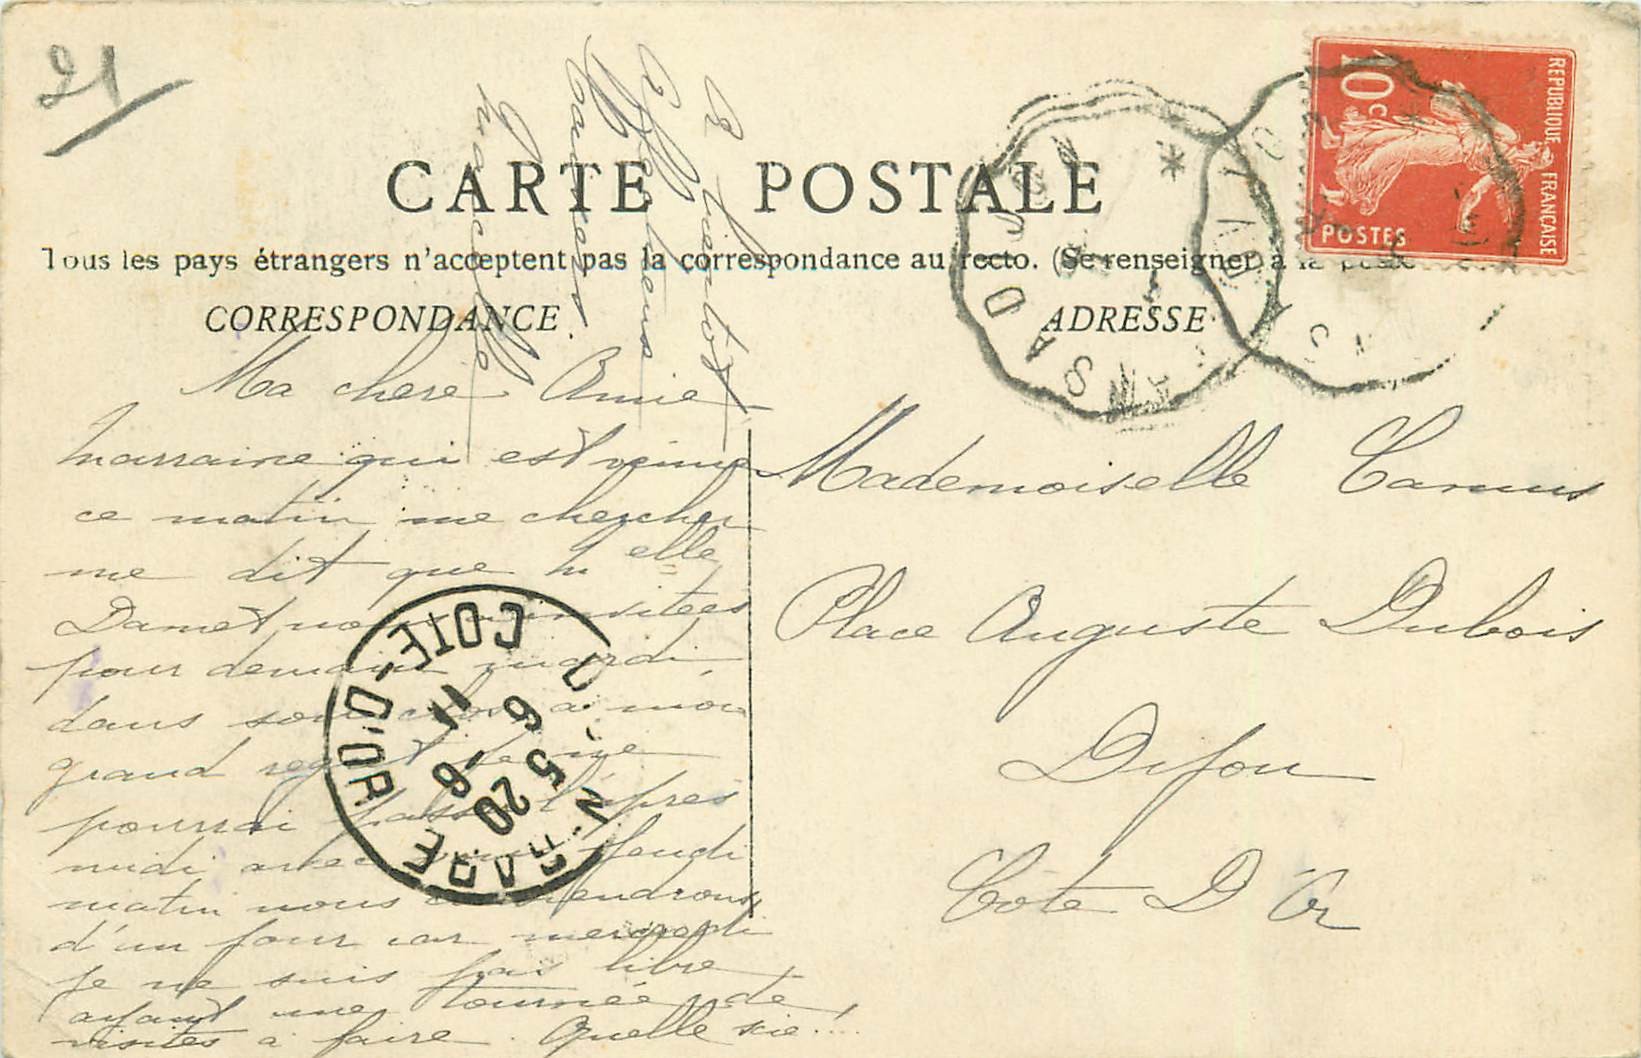 21
CARTE POSTALE
Tous les pays étrangers n'acceptent pas la correspondance au recto. (Se renseigner à la
CORRESPONDANCE
ADRESSE
REPUBLIQUE FRANÇAISE
10c
POSTES
Ma chère Annie
Marraine qui est venue
ce matin me chercher
me dit que Melle
Damet nous invitées
pour demain mardi,
dans son à mon
grand regret je ne
pourrai passer l'après
midi avec vous Jeudi
matin nous
d'un jour car mercredi
je ne suis pas libre
ayant une tournée de
visites à faire. Quelle vie!...
A bientôt
Affectueux
baisers
Marcelle
Mademoiselle Camus
Place Auguste Dubois
Dijon
Côte D'Or
DIJON-GARE
COTE-D'OR
6 5 20
11 -6